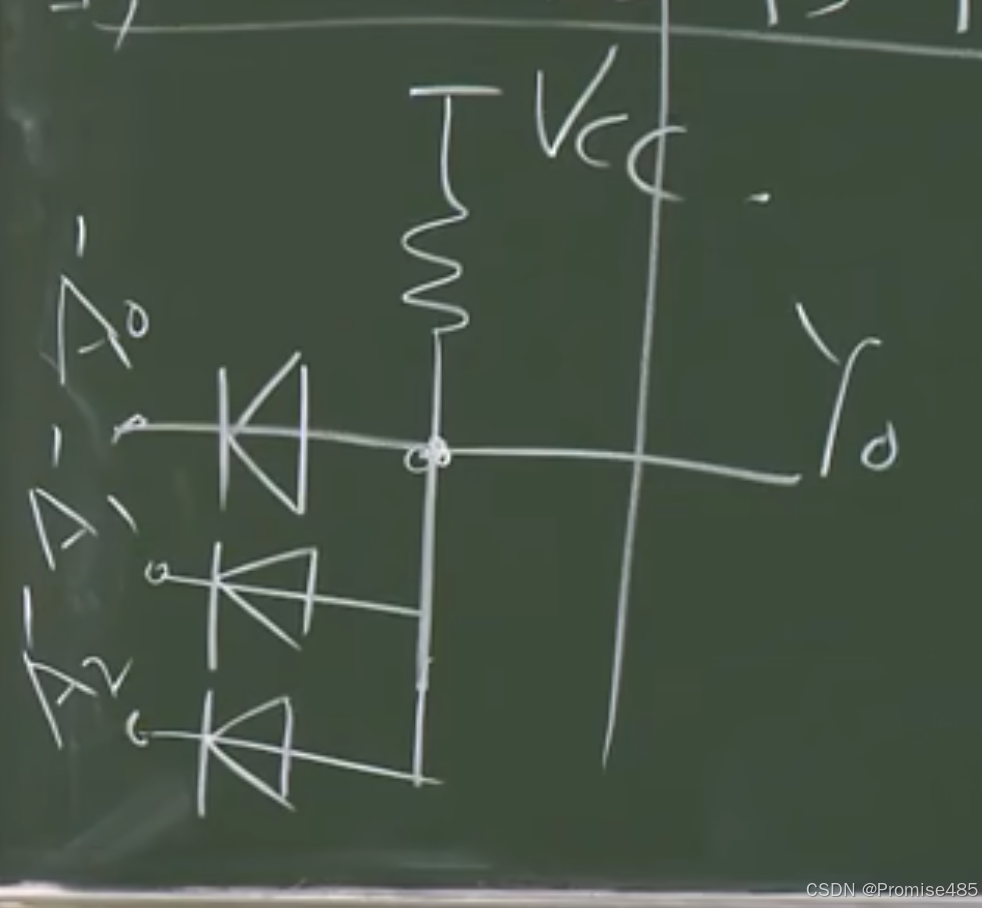 Vcc
A̅0
Y0
A̅1
A̅2
CSDN @Promise485